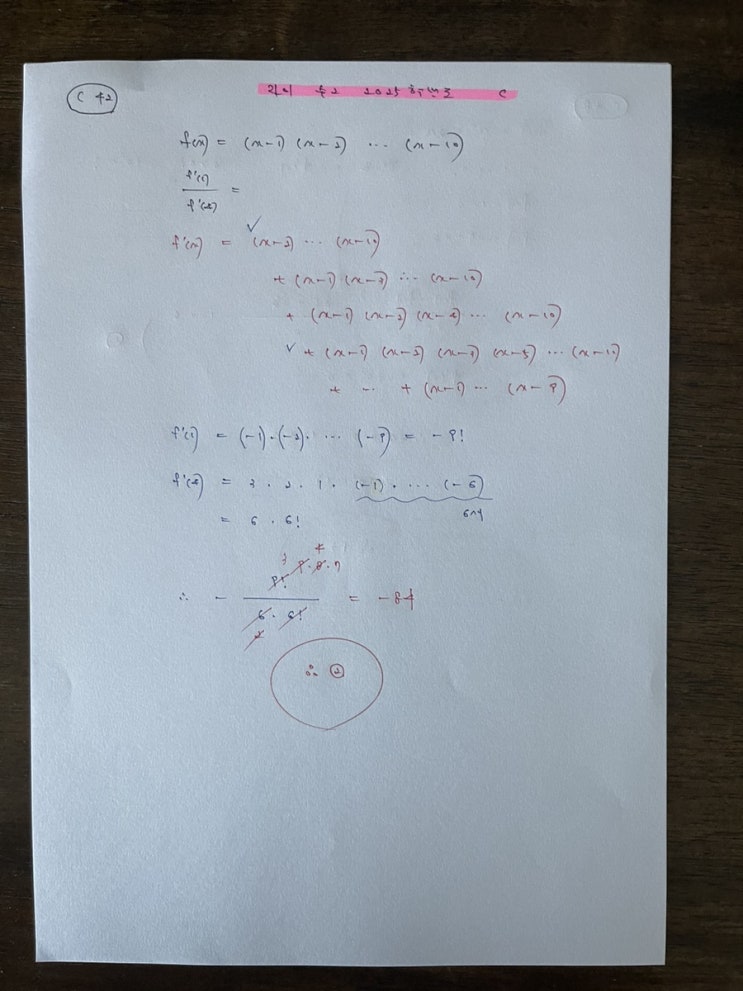 C 42
수2 2025 학년도 C
f(x) = (x-1) (x-2) ... (x-10)
f'(1) / f'(4) =
f'(x) = (x-2) ... (x-10)
+ (x-1) (x-3) ... (x-10)
+ (x-1) (x-2) (x-4) ... (x-10)
+ (x-1) (x-2) (x-3) (x-5) ... (x-10)
+ ... + (x-1) ... (x-9)
f'(1) = (-1)·(-2)· ... (-9) = -9!
f'(4) = 3 · 2 · 1 · (-1) · ... (-6)
6개
= 6 · 6!
∴ - 9! / 6 · 6! = -84
3 4
9·8·7
2
∴ ②